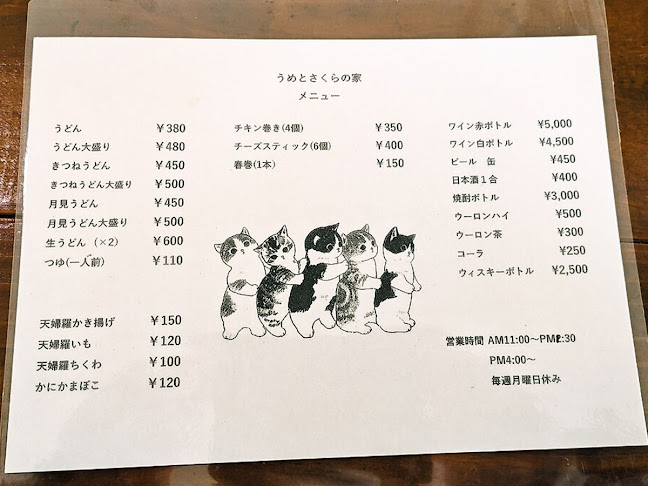 うめとさくらの家
メニュー
うどん ￥380
うどん大盛り ￥480
きつねうどん ￥450
きつねうどん大盛り ￥500
月見うどん ￥450
月見うどん大盛り ￥500
生うどん（×2） ￥600
つゆ(一人前) ￥110
天婦羅かき揚げ ￥150
天婦羅いも ￥120
天婦羅ちくわ ￥100
かにかまぼこ ￥120
チキン巻き(4個) ￥350
チーズスティック(6個) ￥400
春巻(1本) ￥150
ワイン赤ボトル ¥5,000
ワイン白ボトル ¥4,500
ビール 缶 ¥450
日本酒１合 ¥400
焼酎ボトル ¥3,000
ウーロンハイ ¥500
ウーロン茶 ¥300
コーラ ¥250
ウィスキーボトル ¥2,500
営業時間 AM11:00～
PM4:00～
毎週月曜日休み